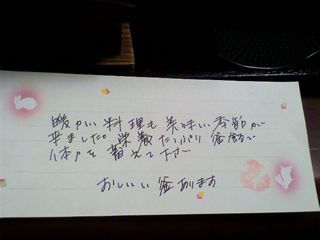 暖かい料理も美味い季節が
来ました。栄養たっぷり 釜飯で
体力を蓄えて下さい
おいしい 釜あります